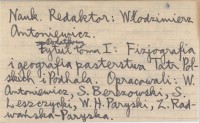 Nauk. Redaktor: Włodzimierz
Antoniewicz.
Tytuł tomu I: Fizjografia
i geografia pasterstwa Tatr Pol-
skich i Podhala. Opracowali: W.
Antoniewicz, S. Berezowski, S.
Leszczycki, W. H. Paryski, Z. Rad-
wańska-Paryska.